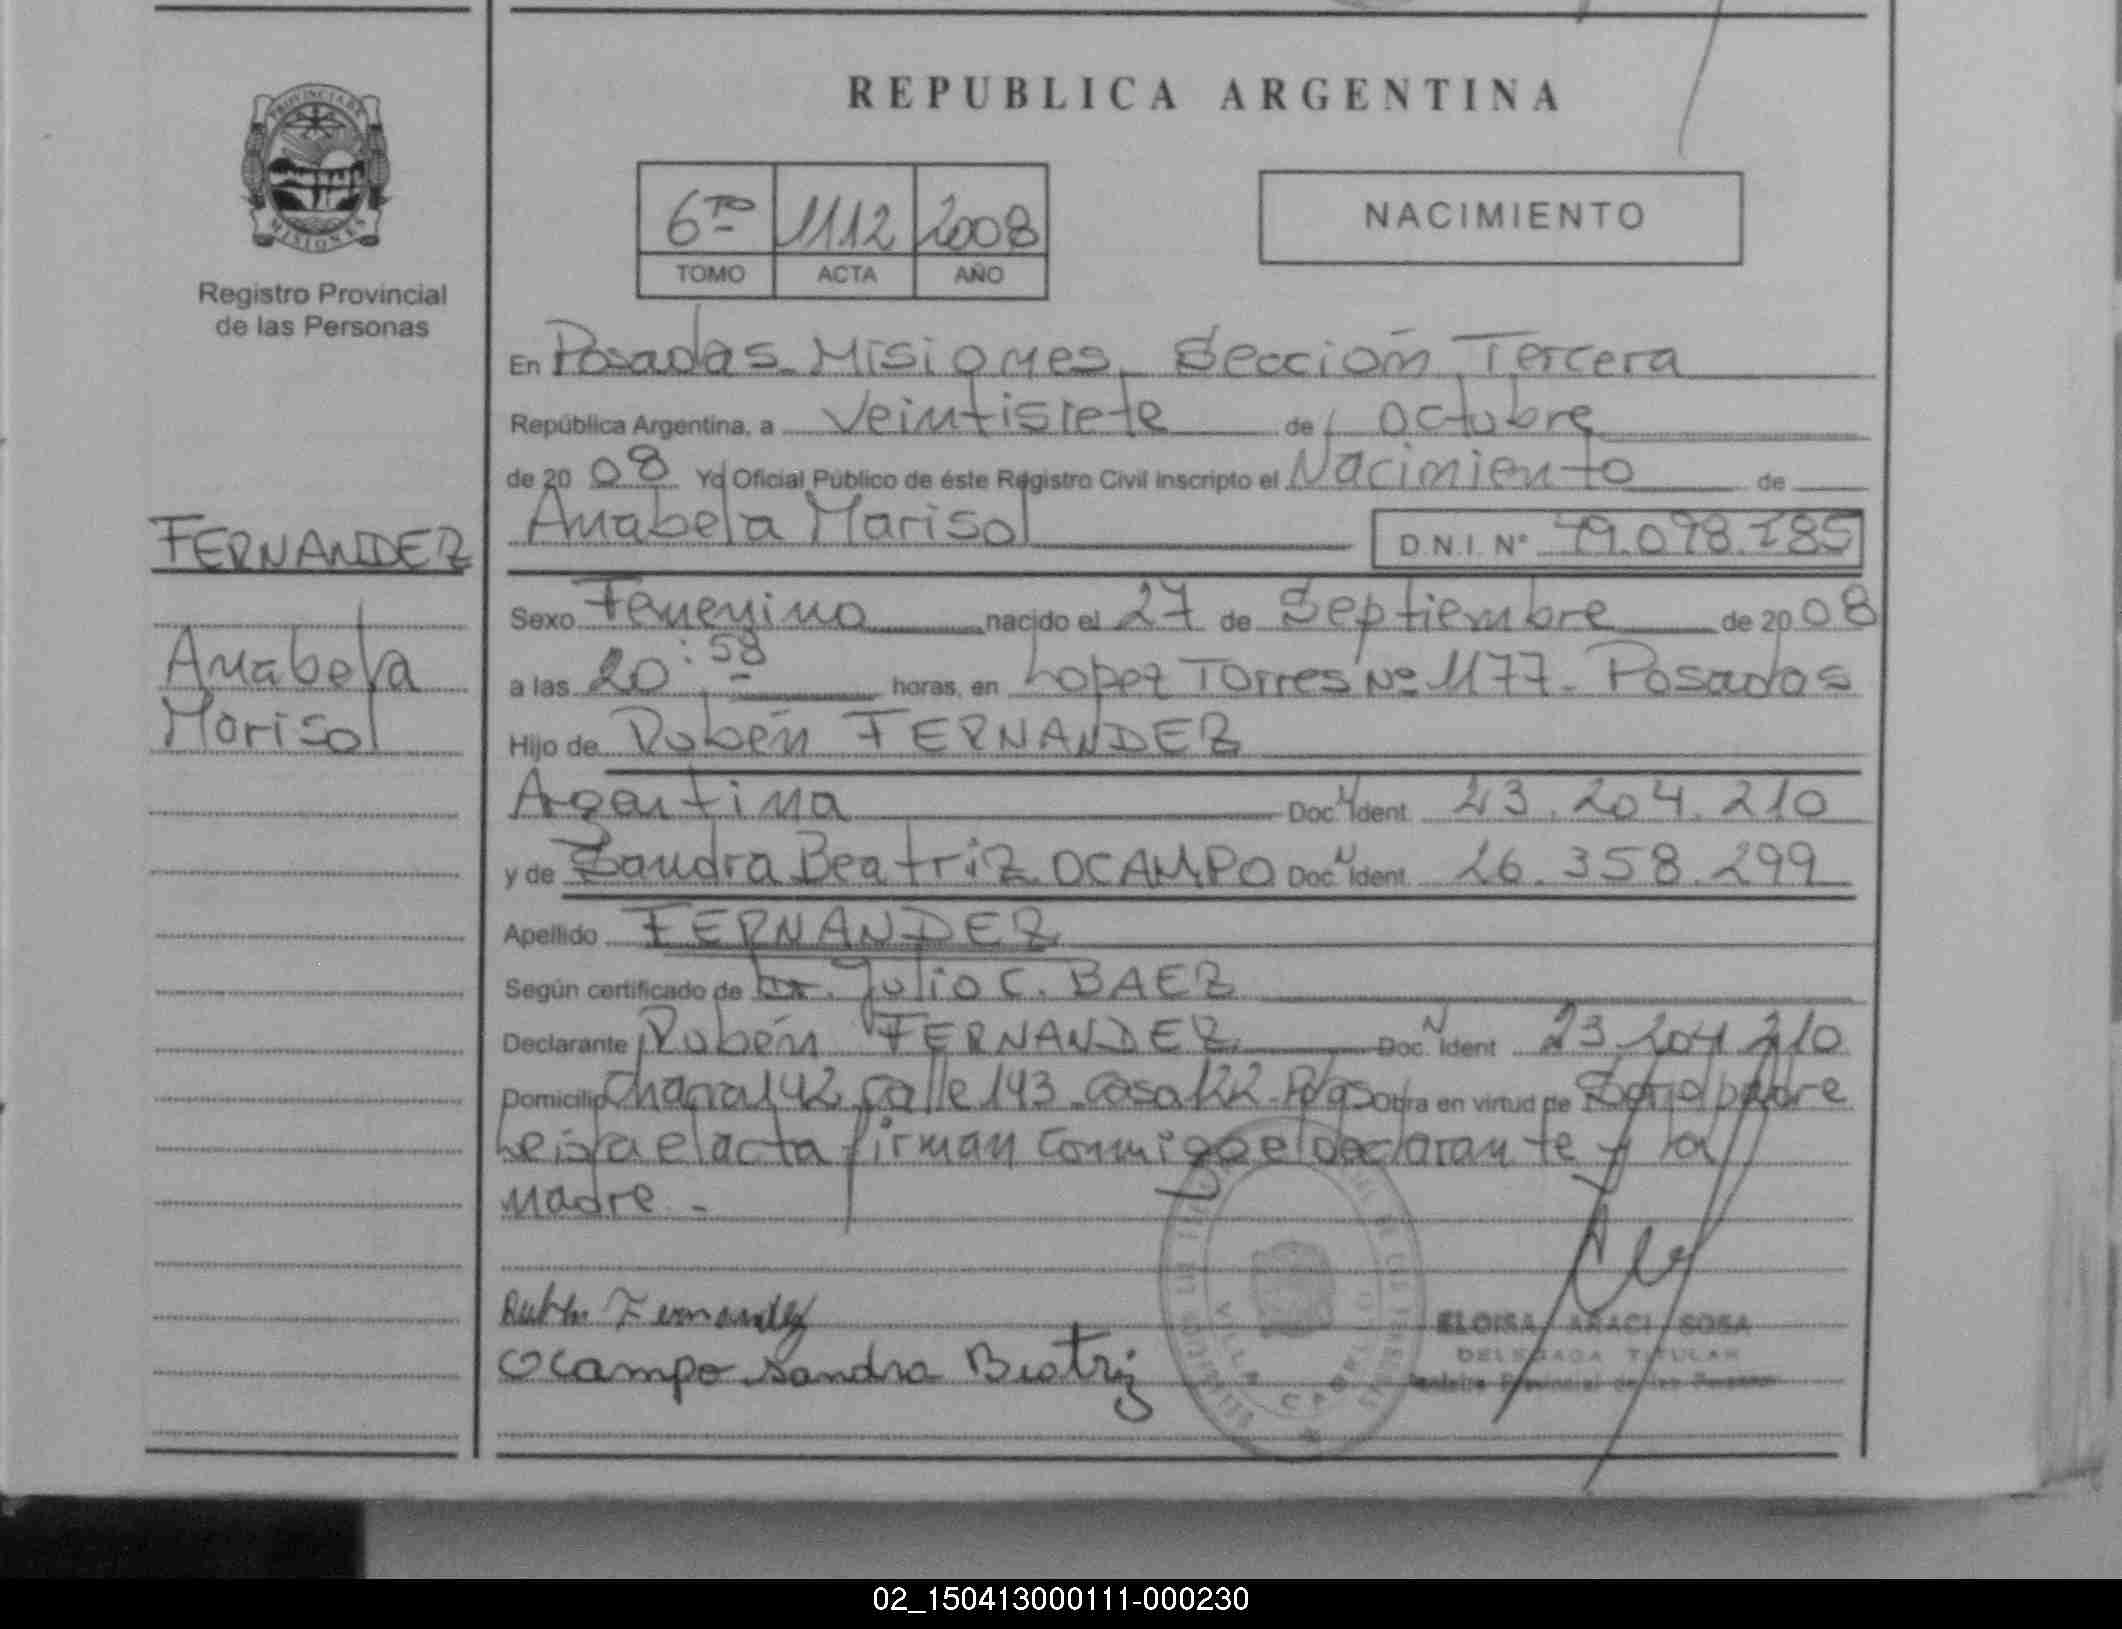 REPUBLICA ARGENTINA
PROVINCIA DE
MISIONES
Registro Provincial
de las Personas
6TO 1112 2008
TOMO ACTA AÑO
NACIMIENTO
En Posadas Misiones, Sección Tercera
República Argentina, a Veintisiete de Octubre
de 20 08 Yo Oficial Público de éste Registro Civil inscripto el Nacimiento de
Anabela Marisol D.N.I. Nº 49.098.185
FERNANDEZ
Anabela
Marisol
Sexo Femenino nacido el 27 de Septiembre de 20 08
a las 20:58 horas, en Lopez Torres Nº 1177 - Posadas
Hijo de Rubén FERNANDEZ
Argentina Doc. N Ident. 23.204.210
y de Sandra Beatriz OCAMPO Doc. N Ident. 26.358.299
Apellido FERNANDEZ
Según certificado de Dr. Julio C. BAEZ
Declarante Rubén FERNANDEZ Doc. N Ident 23.204.210
Domicilio Chacra 142 calle 143 casa 122 - Pdas Obra en virtud de Ser el padre
Leída el acta firman conmigo el declarante y la
madre. -
Rubén Fernandez
Ocampo Sandra Beatriz
VILLA CABELLO
ELOISA ARACI SOSA
DELEGADA TITULAR
Registro Provincial de las Personas
02_150413000111-000230